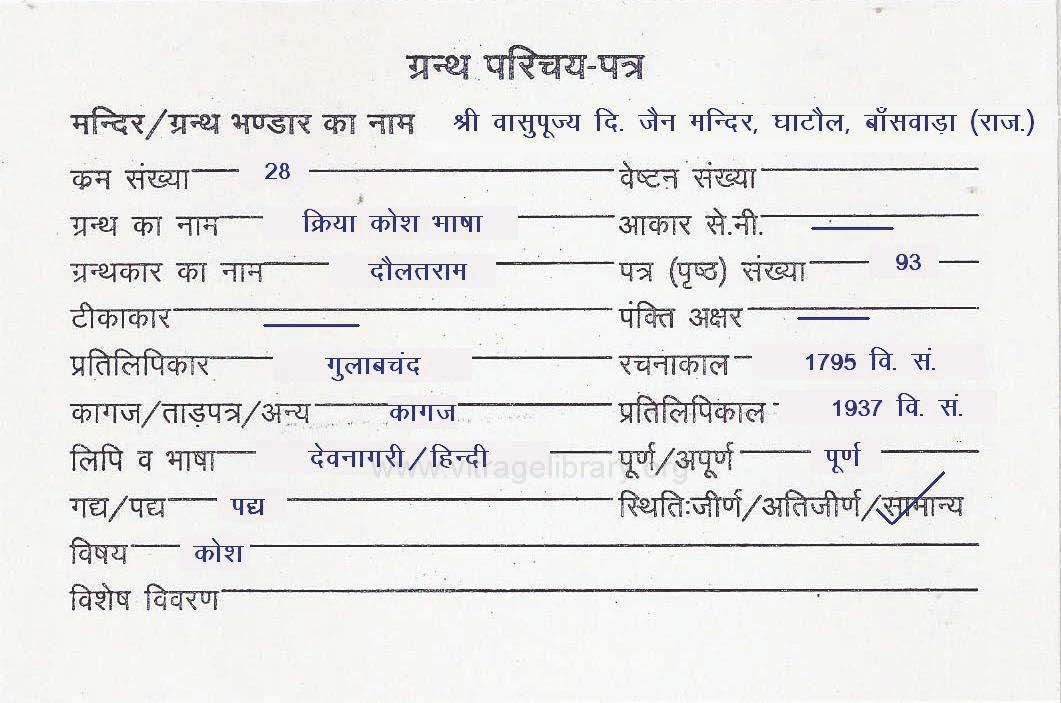 ग्रन्थ परिचय-पत्र
मन्दिर/ग्रन्थ भण्डार का नाम श्री वासुपूज्य दि. जैन मन्दिर, घाटौल, बाँसवाड़ा (राज.)
कम संख्या 28 वेष्टन संख्या
ग्रन्थ का नाम क्रिया कोश भाषा आकार से.मी.
ग्रन्थकार का नाम दौलतराम पत्र (पृष्ठ) संख्या 93
टीकाकार पंक्ति अक्षर
प्रतिलिपिकार गुलाबचंद रचनाकाल 1795 वि. सं.
कागज/ताड़पत्र/अन्य कागज प्रतिलिपिकाल 1937 वि. सं.
लिपि व भाषा देवनागरी/हिन्दी पूर्ण/अपूर्ण पूर्ण
www.vitragelibrary.org
गद्य/पद्य पद्य स्थितिःजीर्ण/अतिजीर्ण/सामान्य
विषय कोश
विशेष विवरण